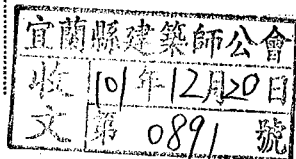 宜蘭縣建築師公會
收文 101年12月20日
第 0891 號